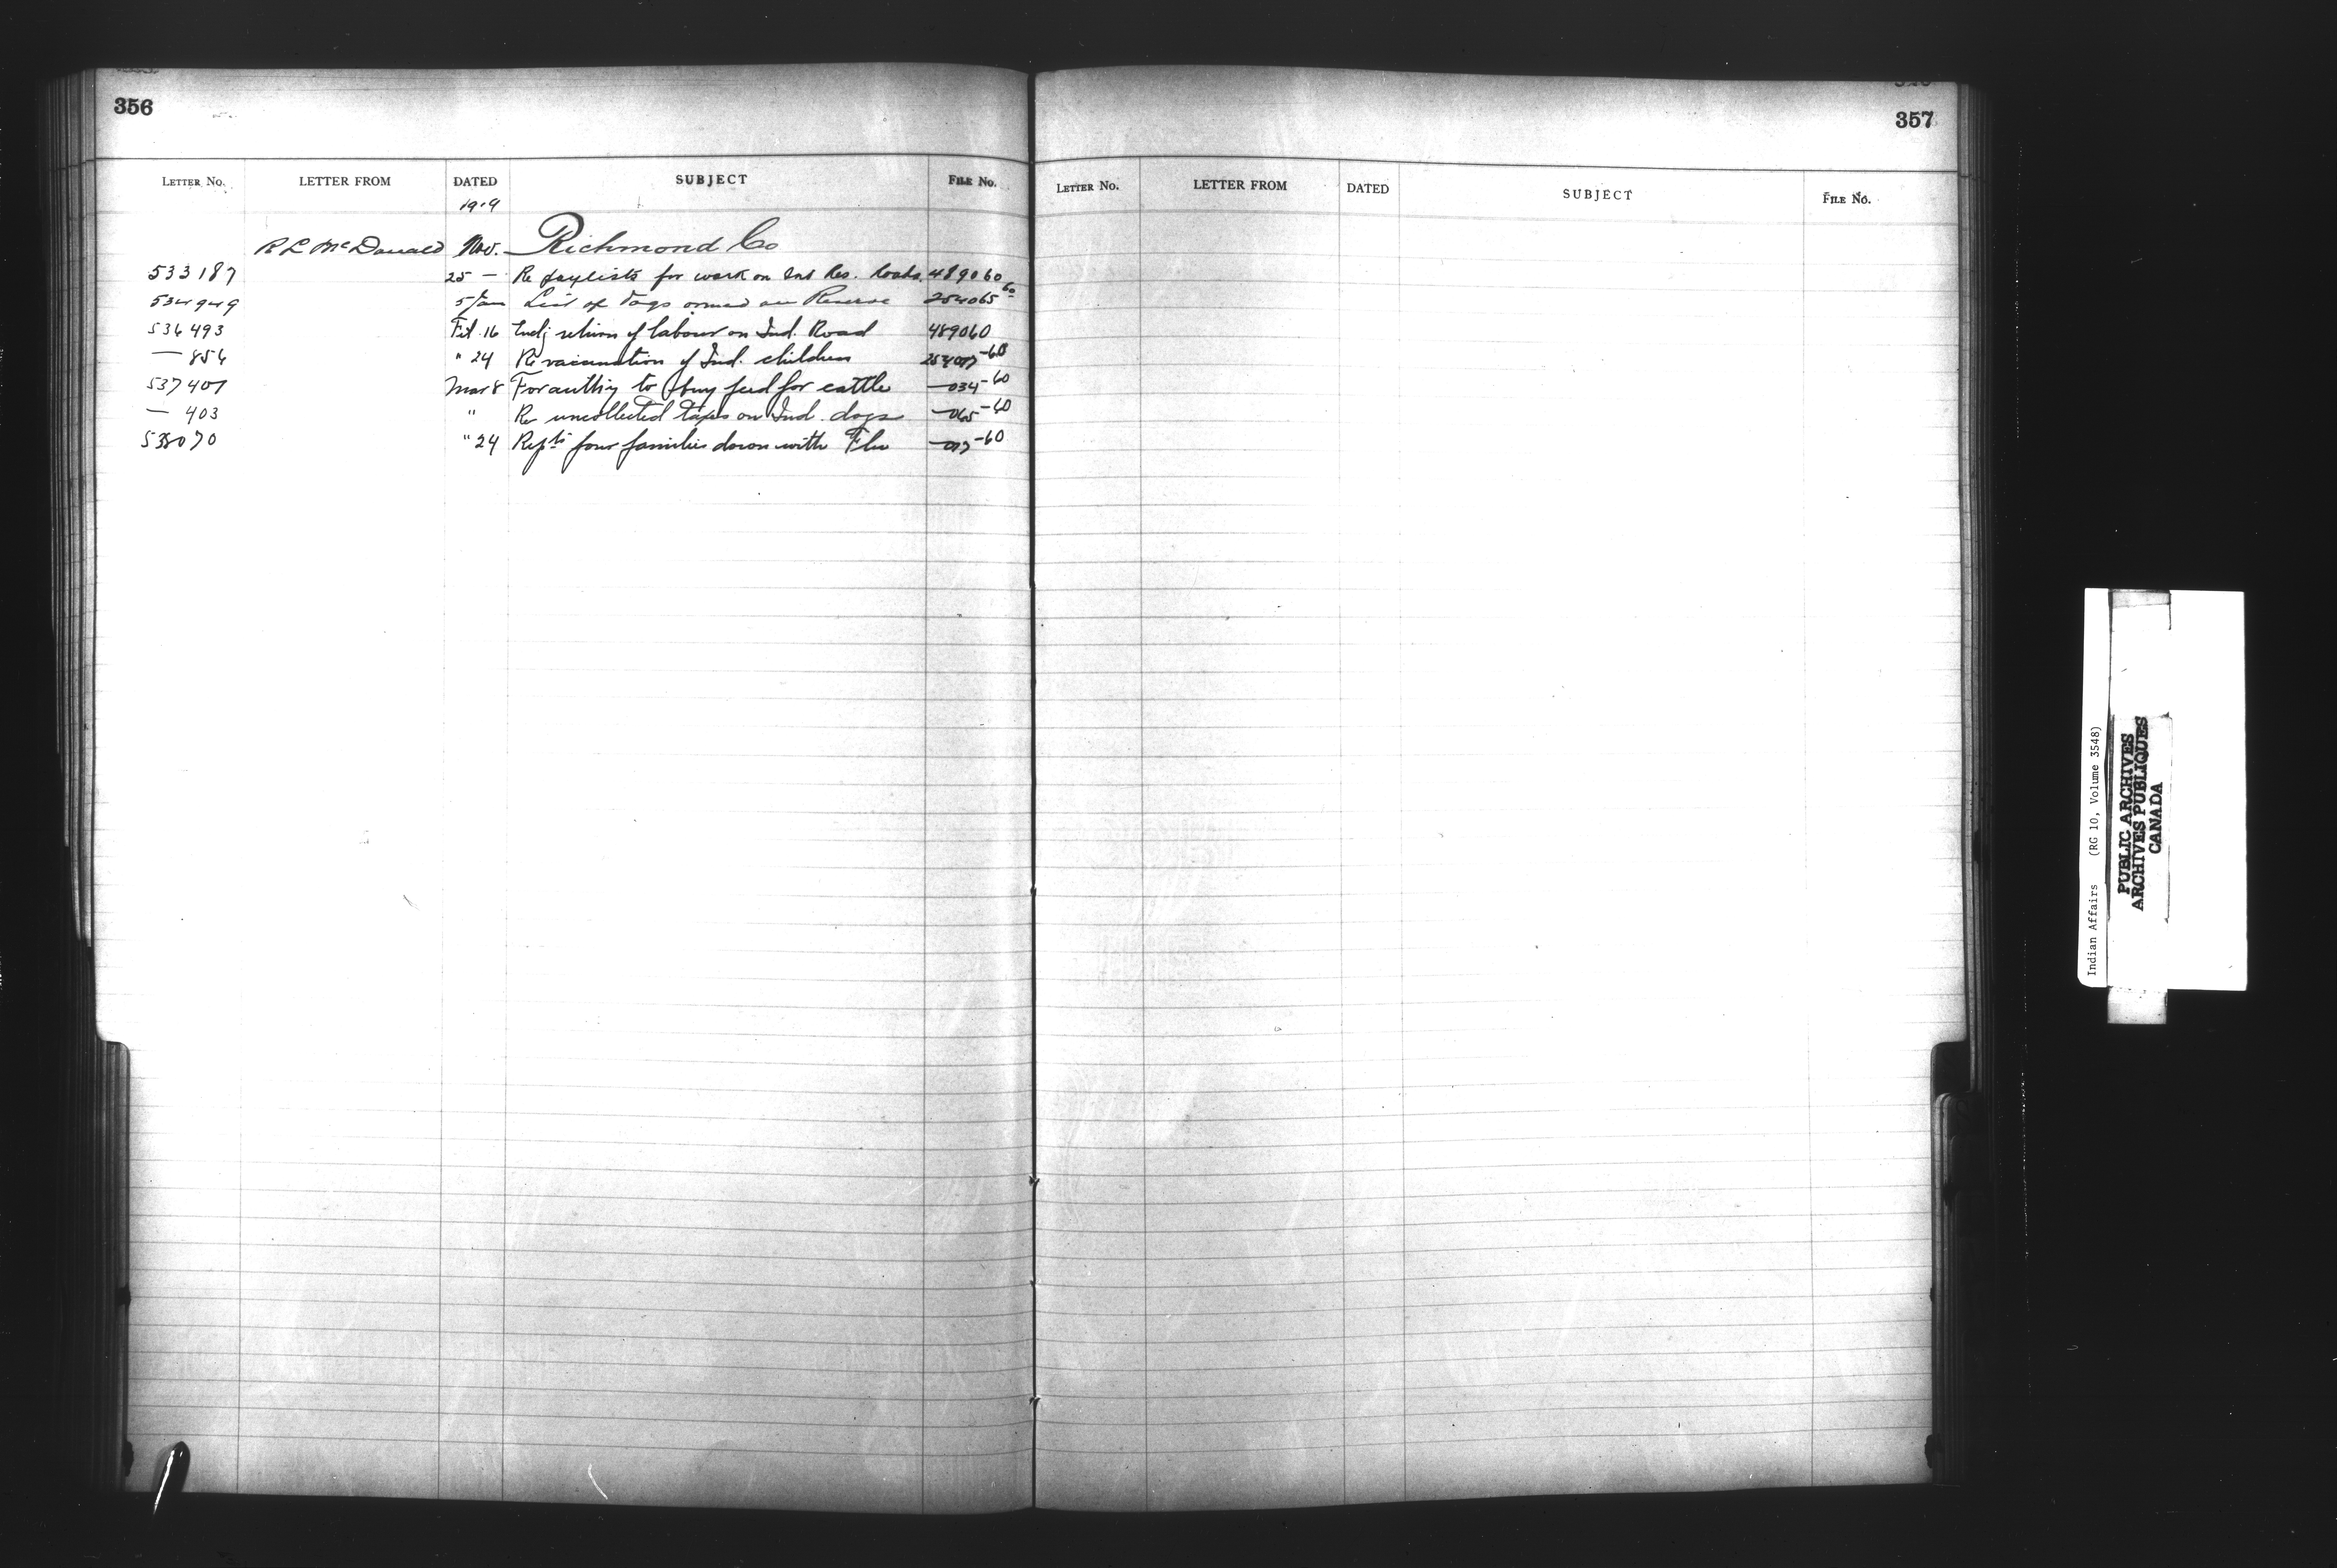 356
LETTER NO. LETTER FROM DATED SUBJECT FILE NO.
1919
R L McDonald Nov. Richmond Co
533187 25 — Re paylists for work on Ind Res. roads 489060
534949 5 Jan List of dogs owned on Reserve 254065-60
536493 Feb. 16 Encl; return of labour on Ind. Road 489060
— 854 " 24 Re vaccination of Ind. children 254017-60
537407 Mar 8 For authy to buy feed for cattle — 034-60
— 403 " Re uncollected taxes on Ind. dogs — 065-60
538070 " 24 Repts four families down with Flu — 017-60
357
LETTER NO. LETTER FROM DATED SUBJECT FILE NO.
Indian Affairs (RG 10, Volume 3548)
PUBLIC ARCHIVES
ARCHIVES PUBLIQUES
CANADA